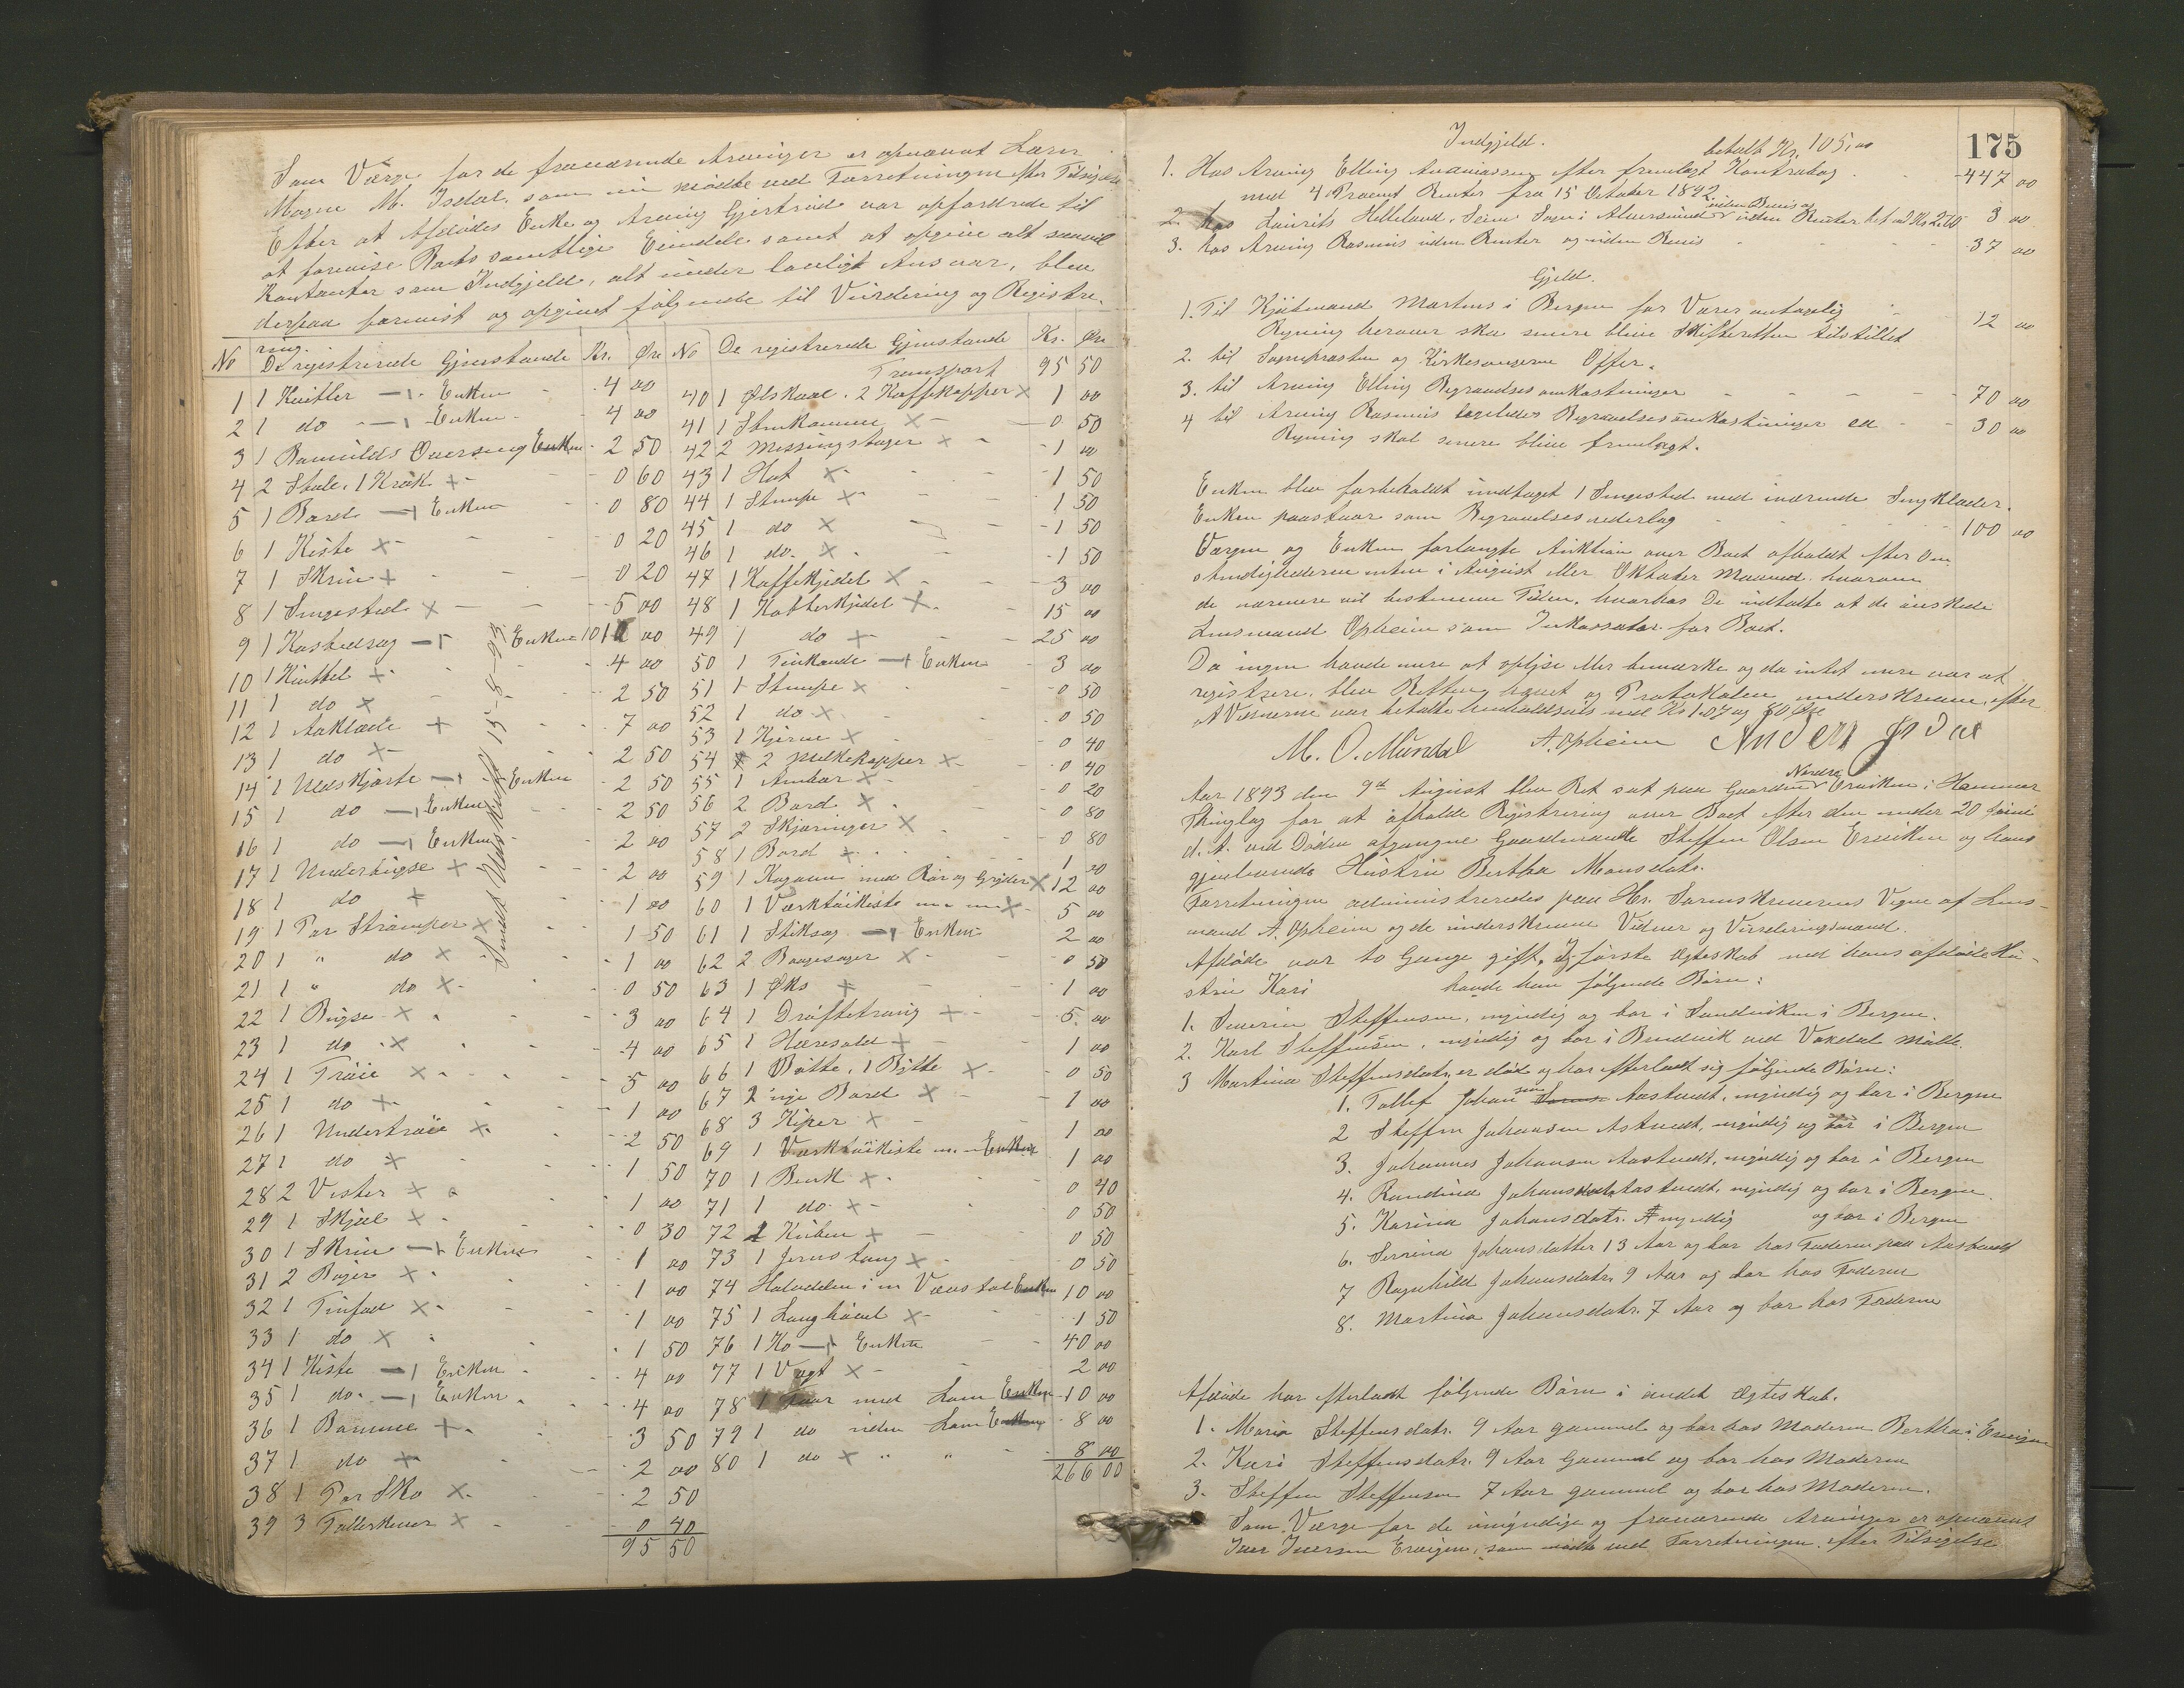 Som Værge for de fraværende Arvinger er opnævnt Lærer
Magne M. Isdal, som nu mødte ved Forretningen efter Tilsigelse
Efter at Afdødes Enke og Arving Gjertrud var opfordrede til
at forevise Boets samtlige Eiendele samt at opgive alt saavel
Kontanter som Indgjeld, alt under lovligt Ansvar, blev
derpaa forevist og opgivet følgende til Vurdering og Registre-
ring.
No De registrerede Gjenstande Kr. Øre
1 1 Kvitler — Enken 4 00
2 1 do — Enken 4 00
3 1 Enken 2 50
4 2 Stole, 1 Krak 0 60
5 1 Bord — Enken 0 80
6 1 Kiste 0 20
7 1 Skrin 0 20
8 1 Sengested 5 00
9 1 — Enken 00
10 1 Kvittel 4 00
11 1 do 2 50
12 1 Aaklæde 7 00
13 1 do 2 50
14 1 Uldskjorte — Enken 2 50
15 1 do — Enken 2 50
16 1 do — Enken 2 00
17 1 Underbugse 2 00
18 1 do 1 00
19 1 Par Strømper 1 50
20 1 " do 1 00
21 1 " do 0 50
22 1 Bugse 3 00
23 1 do 4 00
24 1 Trøie 5 00
25 1 do 1 00
26 1 Undertrøie 2 50
27 1 do 1 50
28 2 Vester 1 00
29 1 Skjæl 0 30
30 1 Skrin — Enken 1 00
31 2 Bøger 1 00
32 1 Tinfad 1 00
33 1 do 1 50
34 1 Kiste — Enken 4 00
35 1 do — Enken 4 00
36 1 Bomme 3 50
37 1 do 2 00
38 1 Par Sko 2 50
39 3 Tallerkener 0 40
95 50
15-8-93
No De registrerede Gjenstande Kr. Øre
Transport 95 50
40 1 Ølskaal, 2 Kaffekopper 1 00
41 1 Stenkomme 0 50
42 2 Messingstager 1 00
43 1 Hat 1 50
44 1 Stampe 1 50
45 1 do 1 50
46 1 do 1 50
47 1 Kaffekjedel 3 00
48 1 Kobberkjedel 15 00
49 1 do 25 00
50 1 Tinkande — Enken 3 00
51 1 Stampe 0 50
52 1 do 0 50
53 1 Kjerne 0 40
54 2 Melkekopper 0 40
55 1 Ambar 0 20
56 2 Bord 0 80
57 2 Skjæringer 0 80
58 1 Bord 1 00
59 1 Kogovn med Rør og Gryder 12 00
60 1 Værktøikiste m. m 5 00
61 1 Stiksag — Enken 2 00
62 2 Baugesager 0 50
63 1 Øks 1 00
64 1 Drøftetraug 5 00
65 1 Hæresold 1 00
66 1 Bøtte, 1 Bytte 0 50
67 2 nye Bord 1 00
68 3 Kiper 1 00
69 1 Værktøikiste m. m Enken 1 00
70 1 Benk 0 40
71 1 do 0 50
72 1 Kuben 0 50
73 1 Jernstang 0 50
74 Halvdelen i en Vævstol Enken 10 00
75 1 Langhøvel 1 50
76 1 Ko — Enken 40 00
77 1 Vægt 2 00
78 1 Faar med Lam Enken 10 00
79 1 do uden Lam Enken 8 00
80 1 do " " 8 00
266 00
175
Indgjeld.
betalt Kr. 105,00
1. Hos Arving Elling Andreassen efter fremlagt Kontrabog 447 00
med 4 Procent Renter fra 15 Oktober 1892.
2. Hos Laurits Helleland, Seim Sogn i Alversund uden Bevis og uden Renter bet. ved Kr 2.70 3 00
3. hos Arving Rasmus uden Renter og uden Bevis 37 00
Gjeld.
1. Til Kjøbmand Martens i Bergen for Varer antagelig 12 00
Regning herover skal senere blive Skifteretten tilstillet
2. til Sognepræsten og Kirkesangeren Offer.
3. til Arving Elling Begravelsesomkostninger 70 00
4 til Arving Rasmus ligeledes Begravelsesomkostninger ca 30 00
Regning skal senere blive fremlagt.
Enken blev forbeholdt undtaget 1 Sengested med iværende Sengklæder.
Enken paastaar som Begravelsesvederlag 100 00
Værgen og Enken forlangte Auktion over Boet afholdt efter Om-
stændighederne enten i August eller Oktober Maaned, hvorom
de nærmere vil bestemme Tiden, hvorhos De udtalte at de ønskede
Lensmand Opheim som Inkassator for Boet.
Da ingen havde mere at oplyse eller bemærke og da intet mere var at
registrere, blev Retten hævet og Protokolen underskreven, efter
at Vidnerne var betalte henholdsvis med Kr 1.07 og 80 Øre
M. O. Mundal A. Opheim Anders Isdal
Aar 1893 den 9de August blev Ret sat paa Gaarden Nordre Erviken i Hammer
Thinglag for at afholde Registrering over Boet efter den under 20 Juni
d. A. ved Døden afgangne Gaardmand Steffen Olsen Erviken og hans
gjenlevende Hustru Bertha Monsdatr.
Forretningen administreredes paa Hr. Sorenskriverens Vegne af Lens-
mand A. Opheim og de underskrevne Vidner og Vurderingsmænd.
Afdøde var to Gange gift. I første Ægteskab med hans afdøde Hu-
stru Kari havde han følgende Børn:
1. Severin Steffensen, myndig og bor i Sandviken i Bergen.
2. Karl Steffensen, myndig og bor i Bruvik ved Vaksdal Mølle.
3 Martina Steffensdatr. er død og har efterladt sig følgende Børn:
1. Tollef Johansen Aastvedt, myndig og bor i Bergen
2 Steffen Johansen Astvedt, myndig og bor i Bergen
3. Johannes Johansen Aastvedt, myndig og bor i Bergen
4. Randina Johansdatr Aastvedt, myndig og bor i Bergen.
5. Karina Johansdatr. myndig og bor i Bergen
6. Severina Johansdatter 13 Aar og bor hos Faderen paa Aastvedt
7 Ragnhild Johansdatr. 9 Aar og bor hos Faderen
8. Martina Johansdatr. 7 Aar og bor hos Faderen
Afdøde har efterladt følgende Børn i andet Ægteskab.
1. Maria Steffensdatr. 9 Aar gammel og bor hos Moderen Bertha i Ervigen
2. Kari Steffensdatr. 9 Aar Gammel og bor hos Moderen
3. Steffen Steffensen 7 Aar gammel og bor hos Moderen.
Som Værge for de umyndige og fraværende Arvinger er opnævnt
Iver Iversen Ervigen, som mødte ved Forretningen efter Tilsigelse